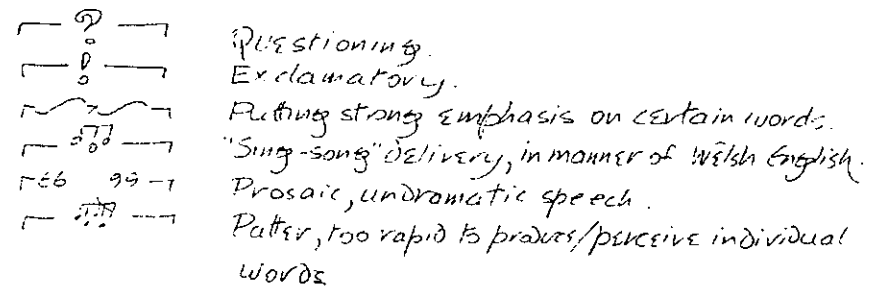 ? Questioning.
! Exclamatory.
Putting strong emphasis on certain words.
"Sing-song" delivery, in manner of Welsh English.
66 99 Prosaic, undramatic speech.
Patter, too rapid to produce/perceive individual
words